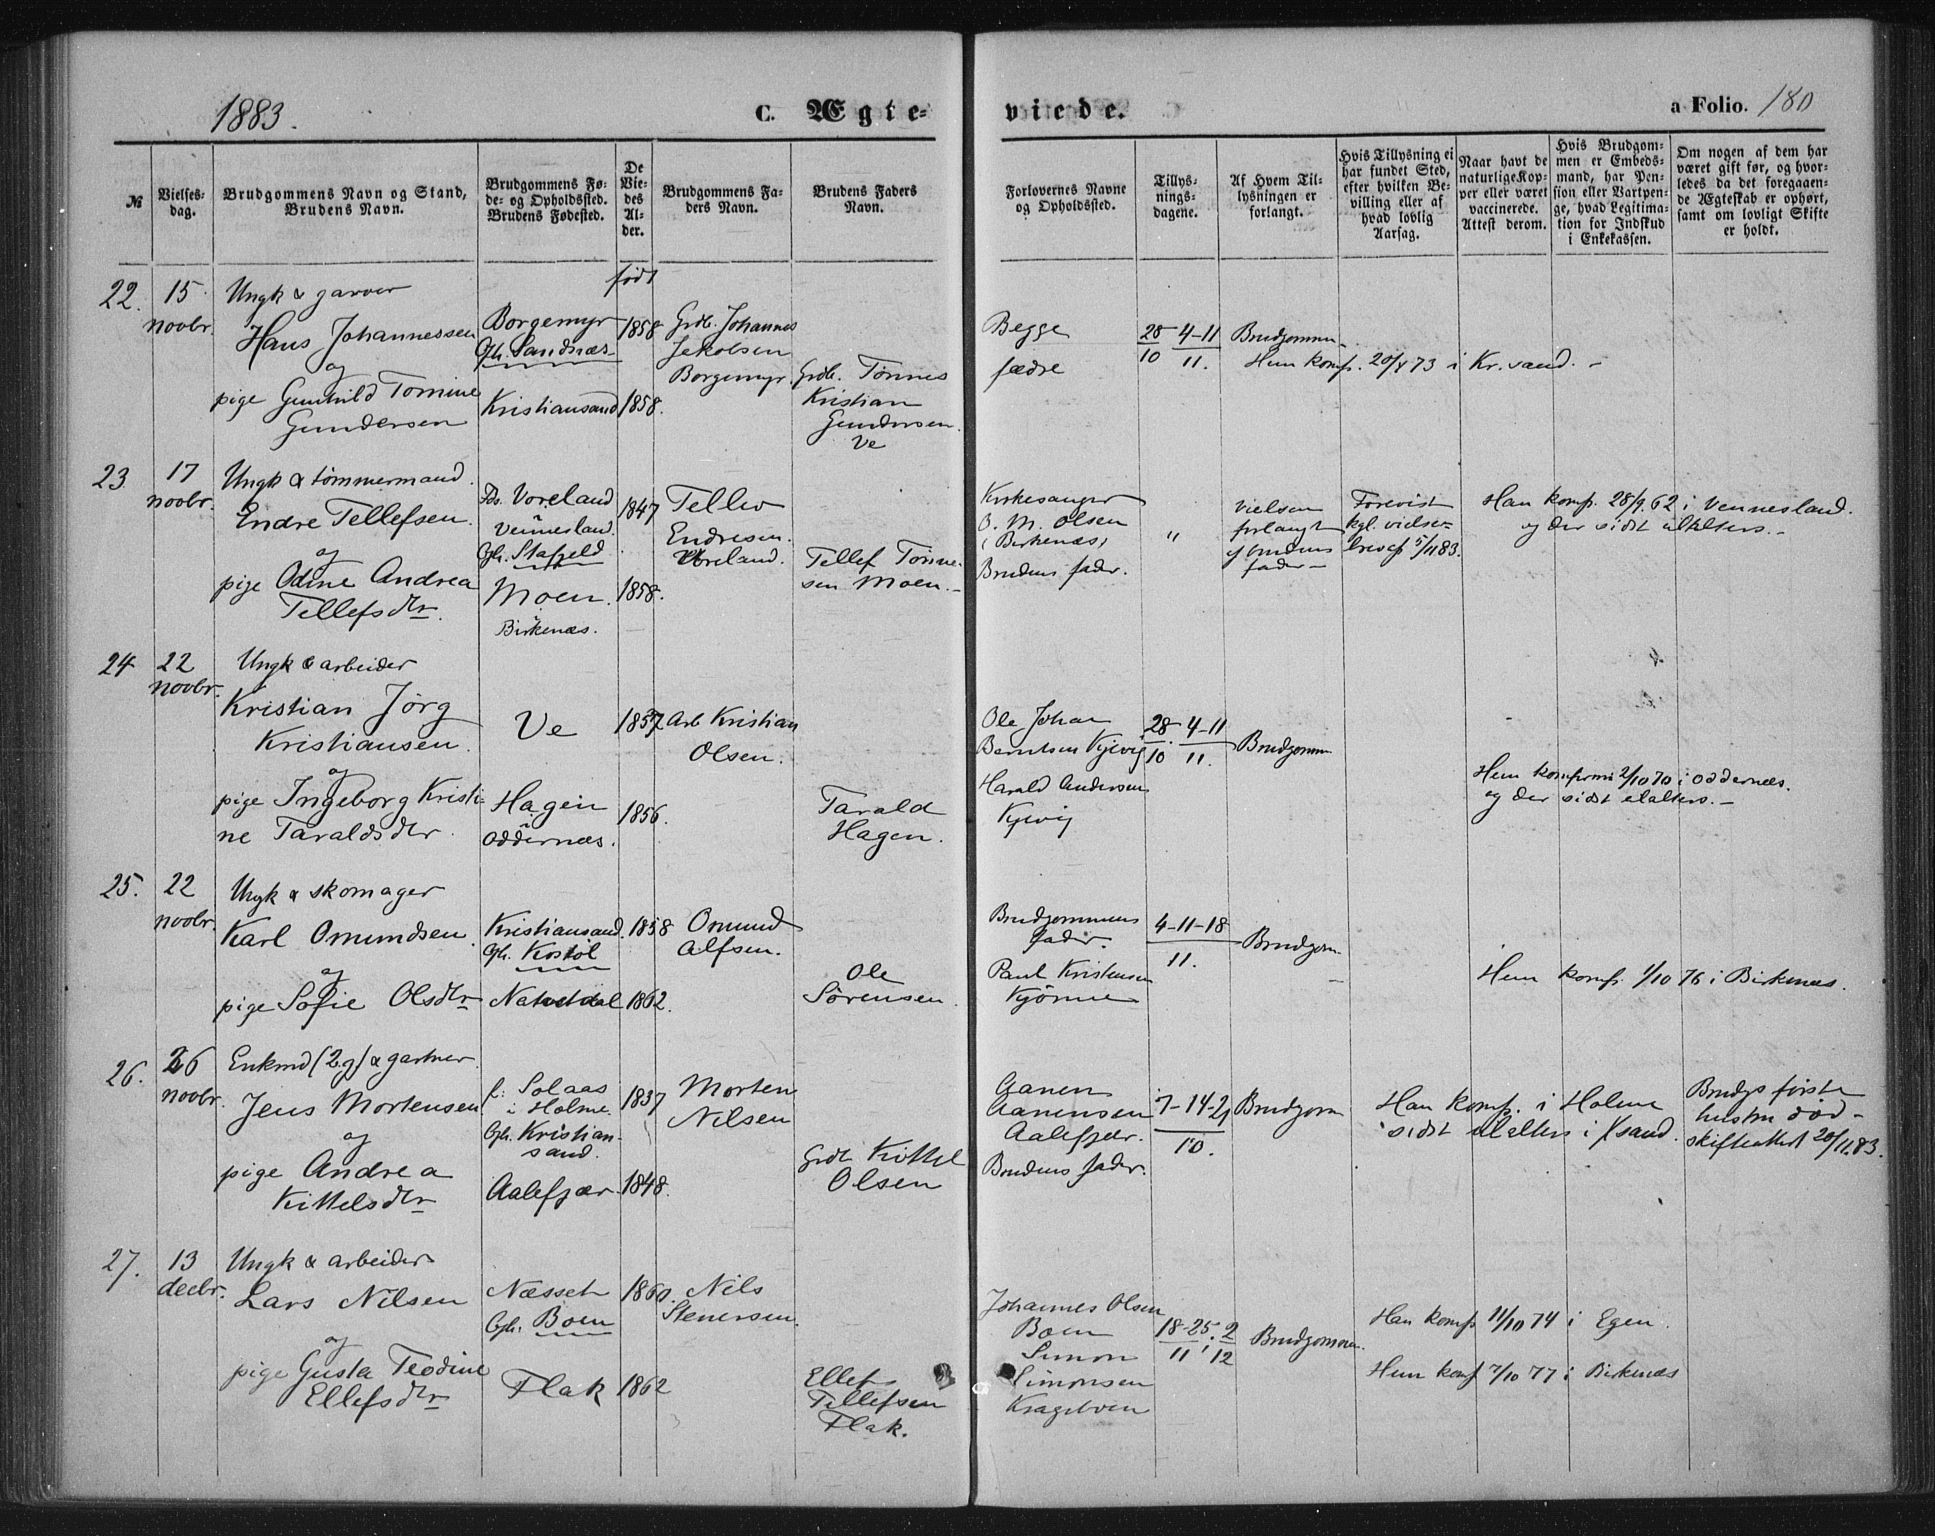 1883.
C. Ægte-
viede.
a Folio. 180
№
Vielses-
dag.
Brudgommens Navn og Stand,
Brudens Navn.
Brudgommens Fø-
de- og Opholdssted.
Brudens Fødested.
De
Vie-
des
Al-
der.
Brudgommens Fa-
ders Navn.
Brudens Faders
Navn.
Forlovernes Navne
og Opholdssted.
Tillys-
nings-
dagene.
Af Hvem Til-
lysningen er
forlangt.
Hvis Tillysning ei
har fundet Sted,
efter hvilken Be-
villing eller af
hvad lovlig
Aarsag.
Naar havt de
naturlige Kop-
per eller været
vaccinerede.
Attest derom.
Hvis Brudgom-
men er Embeds-
mand, har Pen-
sion eller Vartpen-
ge, hvad Legitima-
tion for Indskud
i Enkekassen.
Om nogen af dem har
været gift før, og hvor-
ledes da det foregaaen-
de Ægteskab er ophørt,
samt om lovligt Skifte
er holdt.
født
22. 15 noobr.
Ungk & garver
Hans Johannessen
og
pige Gunhild Tomine
Gundersen
Borgemyr
Oph. Sandnæs
Kristiansand
1858
1858.
Grdb. Johannes
Jakobsen
Borgemyr.
Grdb. Tønnes
Kristian
Gundersen.
Ve
Begge
fædre
28 4-11
10 11.
Brudgommen
Hun konf. 20/4 73 i Kr.sand. -
23 17 noobr.
Ungk & tømmermand.
Endre Tellefsen.
og
pige Odine Andrea
Tellefsdtr.
Fds. Voreland
i
Vennesland.
Oph. Stafjeld
Moen.
i
Birkenæs.
1847
1858.
Tellev
Endresen
Voreland.
Tellef Tønne-
sen Moen. -
Kirkesanger
O. M. Olsen
(Birkenæs)
Brudens fader.
"
vielsen
forlangt
af brudens
fader -
Forevist
kgl. vielse-
brev af 5/11 83.
Han konf. 28/9 62 i Vennesland.
og der sidst til alters. -
24 22 noobr.
Ungk & arbeider
Kristian Jörg
Kristiansen.
og
pige Ingeborg Kristi-
ne Taraldsdtr.
Ve
Hagen
i
Oddernæs.
1857
1856.
Arb Kristian
Olsen.
Tarald
Hagen.
Ole Johan
Berntsen Kjevig
Harald Andersen
Kjevig
28 4-11
10 11.
Brudgomm
Hun konfirm 2/10 70 i Oddernæs.
og der sidst til alters. -
25. 22 noobr.
Ungk & skomager
Karl Omundsen.
og
pige Sofie Olsdtr
Kristiansand.
Oph. Kostöl
1858
1862.
Omund
Alfsen.
Ole
Sörensen.
Brudgommens
fader.
Paul Kristensen
4-11-18
11.
Brudgom
Hun konf. 1/10 76 i Birkenæs.
26. 26 noobr.
Enkmd (2.g) & gartner
Jens Mortensen
og
pige Andrea
Kittelsdtr
f: Solaas
i Holme.
Oph. Kristian-
sand.
Aalefjær
1837
1848.
Morten
Nilsen
Grdb Kittel
Olsen
Aanen
Aanensen
Aalefjær.
Brudens fader.
7-14-21
10.
Brudgom
Han konf. i Holme
sidst til alters i K sand.
Brudgs første
hustru död -
skifteattest 20/11 83.
27. 13 decbr.
Ungk & arbeider
Lars Nilsen
og
pige Gusta Teodine
Ellefsdtr
Næsset
Oph. Boen
Flak
1860.
1862
Nils
Stenersen.
Ellef
Tellefsen
Flak.
Johannes Olsen
Boen
Simon
Simonsen
18-25. 2
11 12
Brudgommen.
Han konf. 11/10 74 i Egen.
Hun konf 7/10 77 i Birkenæs